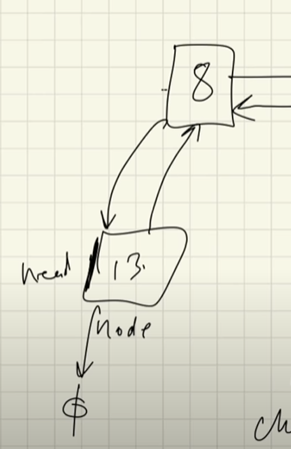 8
head 13.
node
ϕ
ch